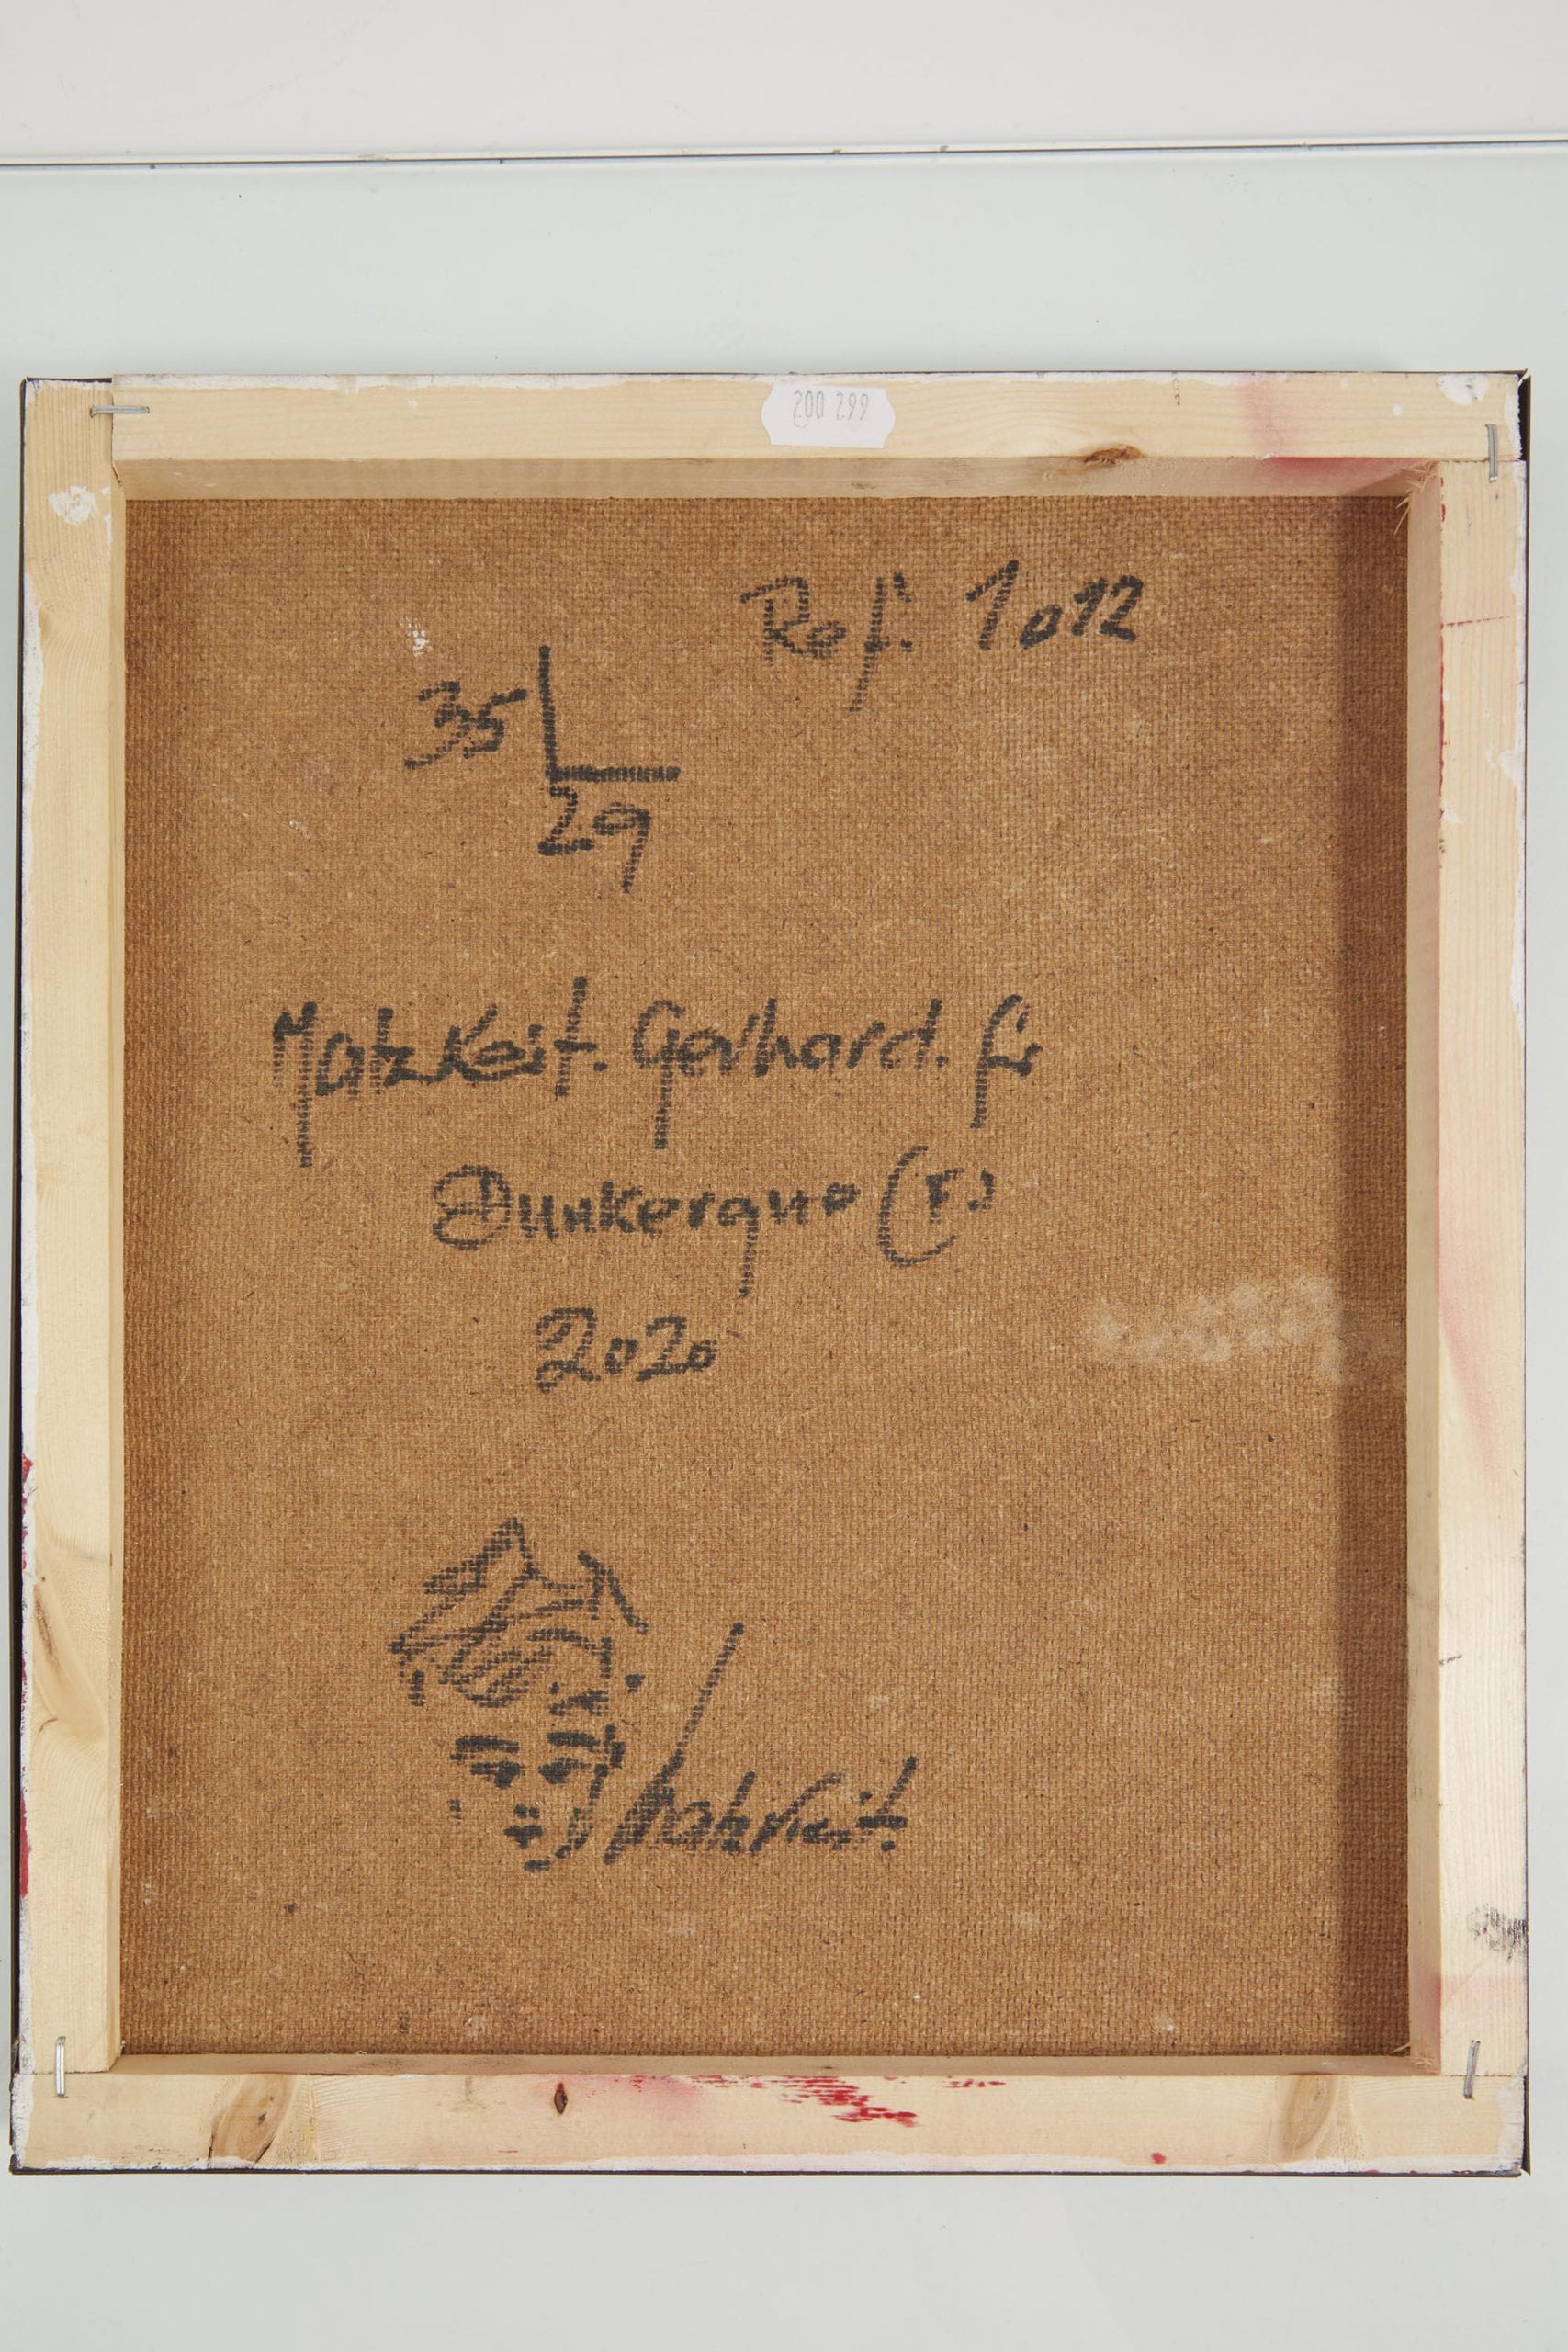 200 299
Ref: 1012
35
29
Matzkeit. Gerhard.
Dunkerque (F)
2020
Matzkeit.